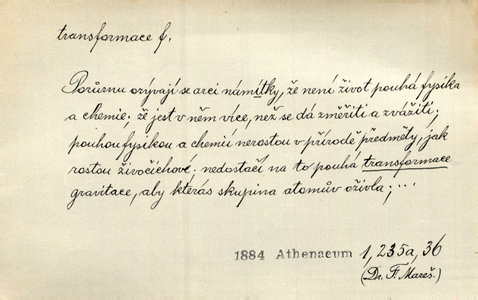 transformace f.
Porůznu ozývají se arci námitky, že není život pouhá fysika
a chemie; že jest v něm více, než se dá změřiti a zvážiti;
pouhou fysikou a chemií nerostou v přírodě předměty, jak
rostou živočichové; nedostačí na to pouhá transformace
gravitace, aby kterás skupina atomův oživla; ...
1884 Athenaeum 1, 235a, 36
(Dr. F. Mareš.)